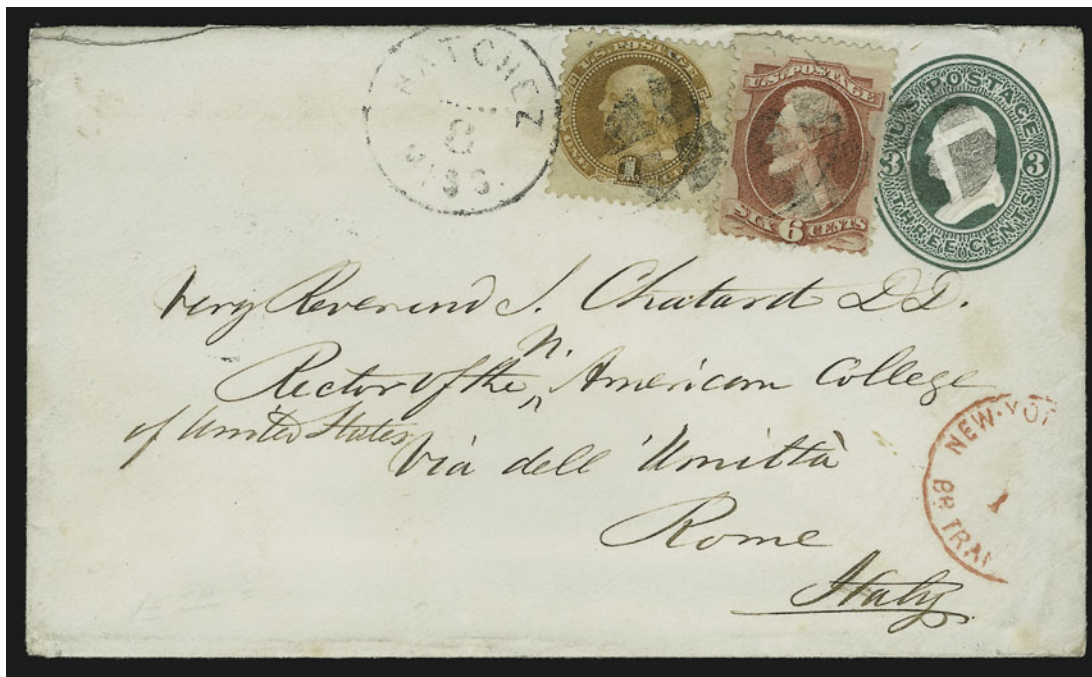 NATCHEZ
8
MISS.
U.S. POSTAGE
ONE 1 CENT
U.S. POSTAGE
SIX 6 CENTS
U.S. POSTAGE
3 3
THREE CENTS
Very Reverend S. Chatard D.D.
n.
Rector of the ^ American College
of United States
Via dell 'Umittà
Rome
Italy
NEW-YOR
BR. TRAN